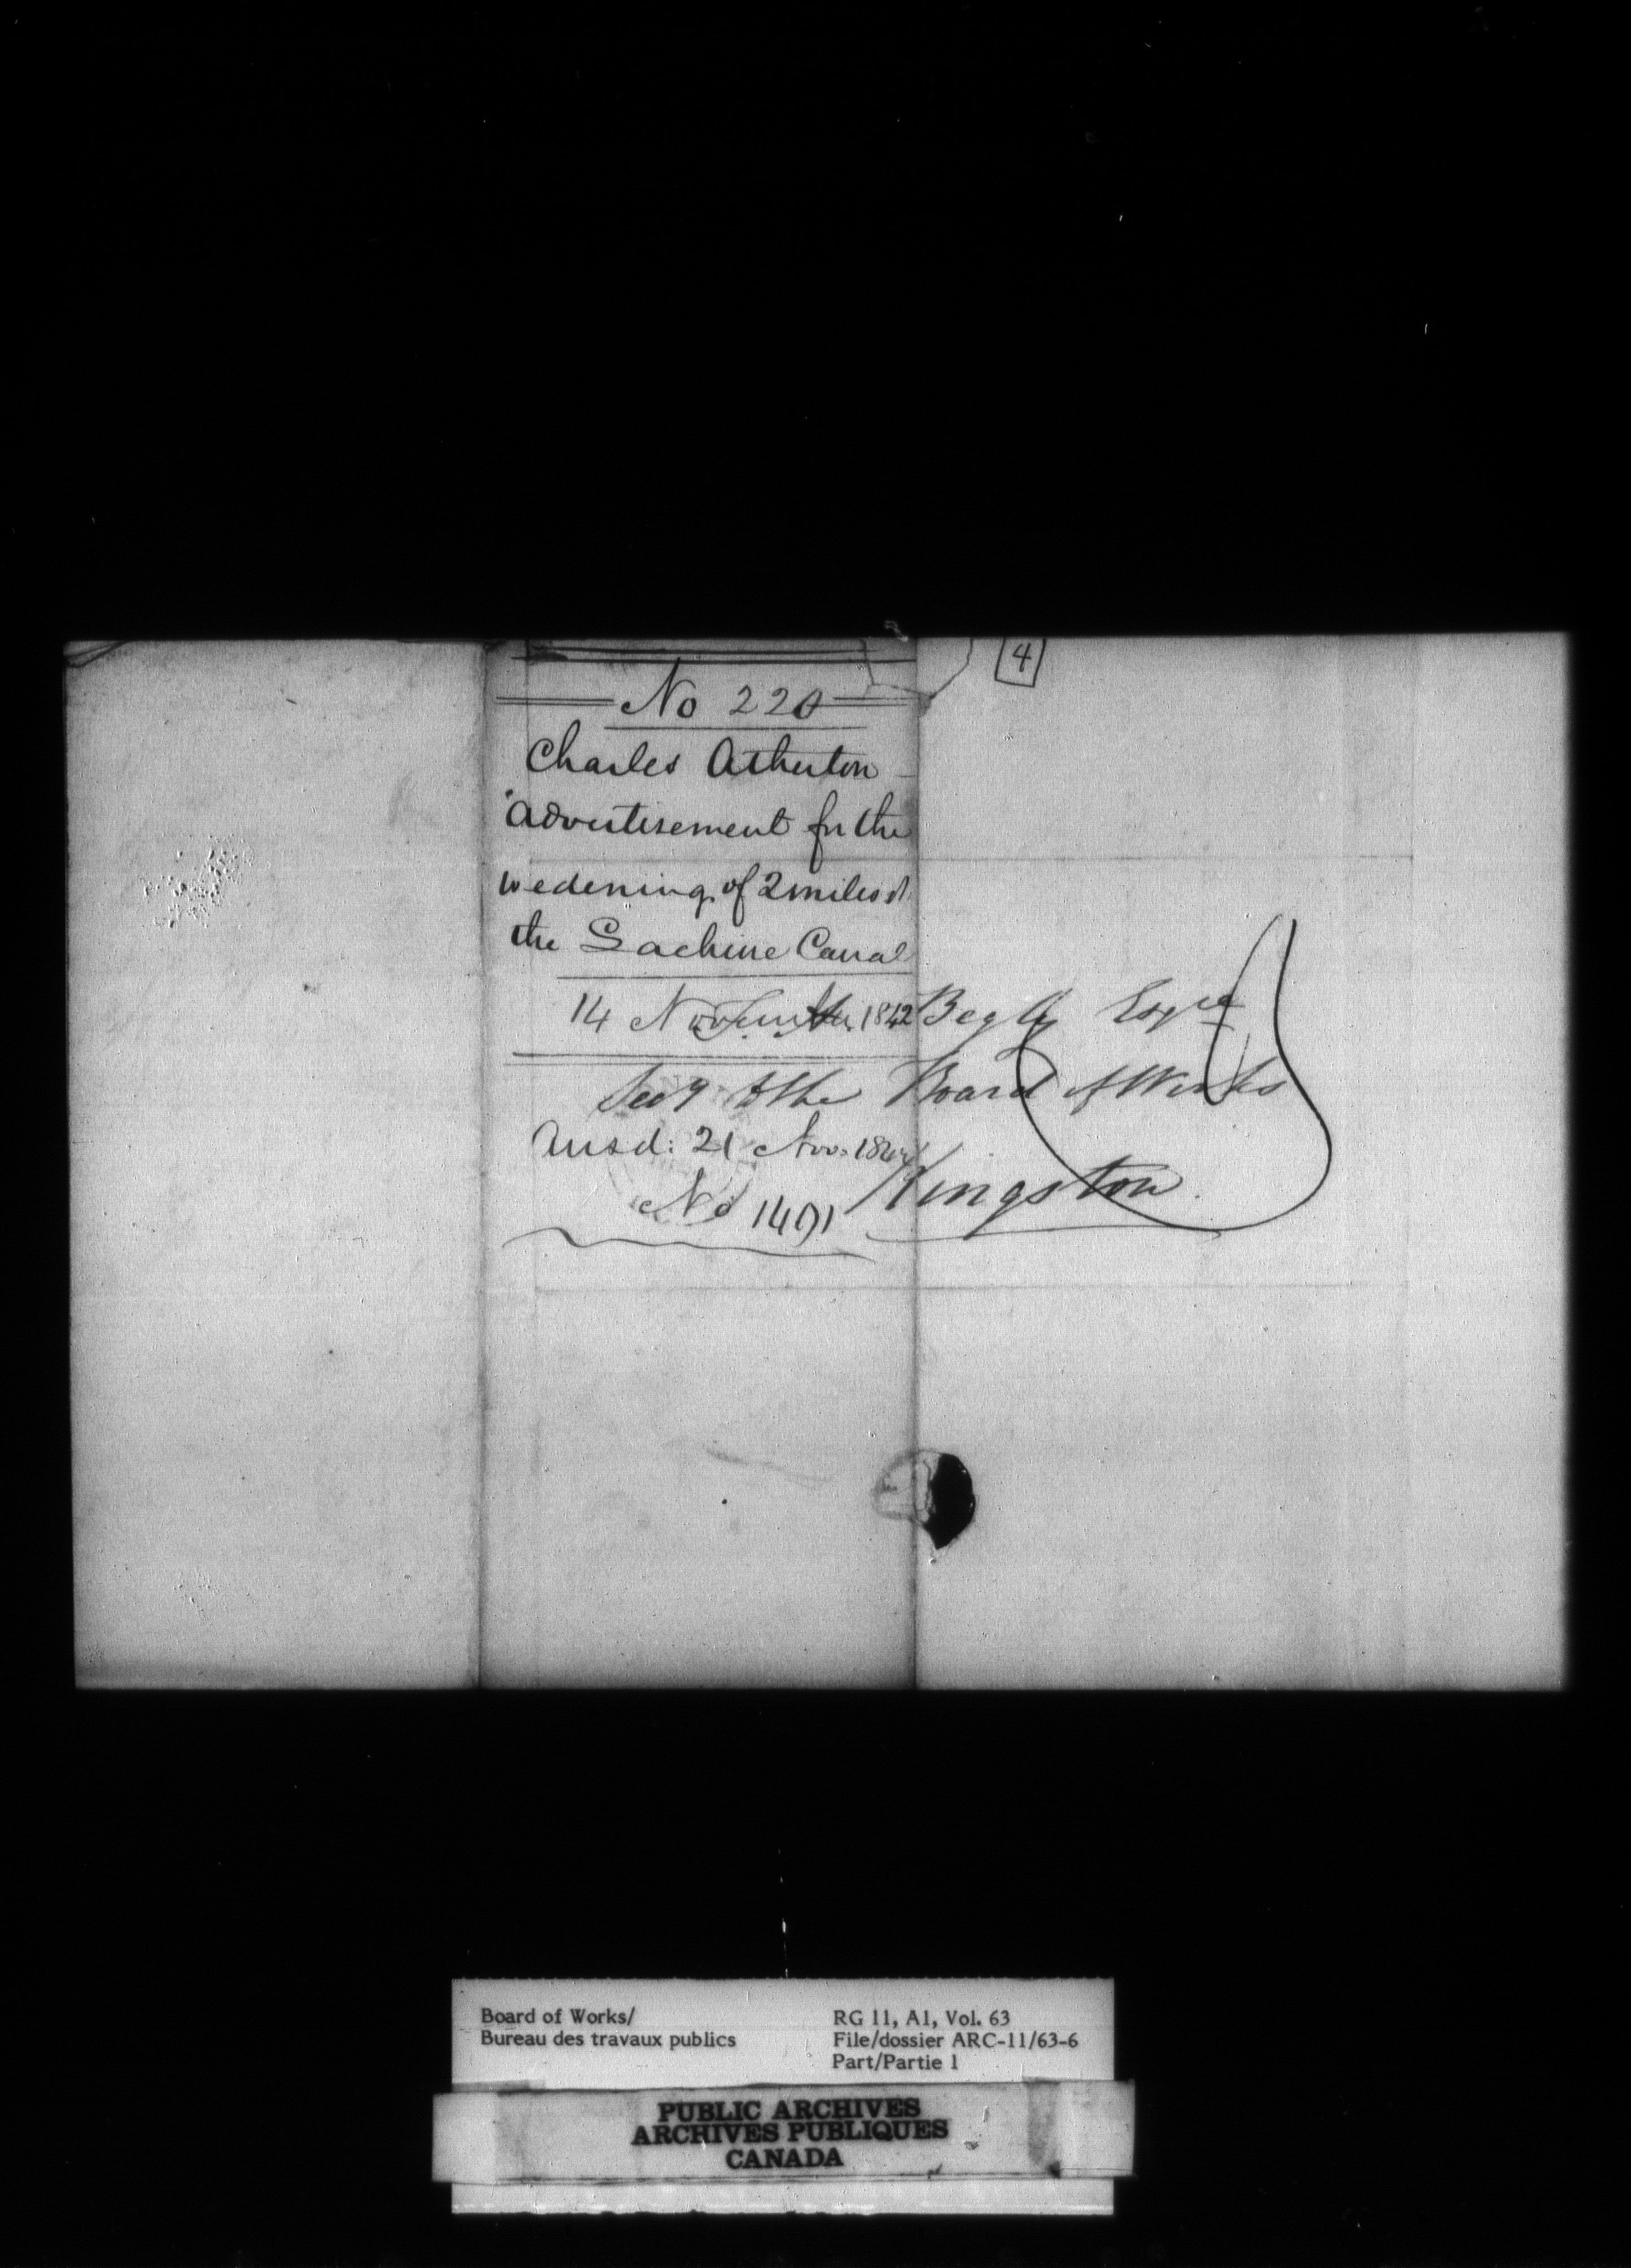 4
No 220
Charles Atherton
Advertisement for the
wedening of 2 miles of
the Lachine Canal
14 November 1842
Begly Esqre
Secy to the Board of Works
Kingston
Ansd: 21 Nov. 1842
No 1491
Board of Works/
Bureau des travaux publics
RG 11, A1, Vol. 63
File/dossier ARC-11/63-6
Part/Partie 1
PUBLIC ARCHIVES
ARCHIVES PUBLIQUES
CANADA